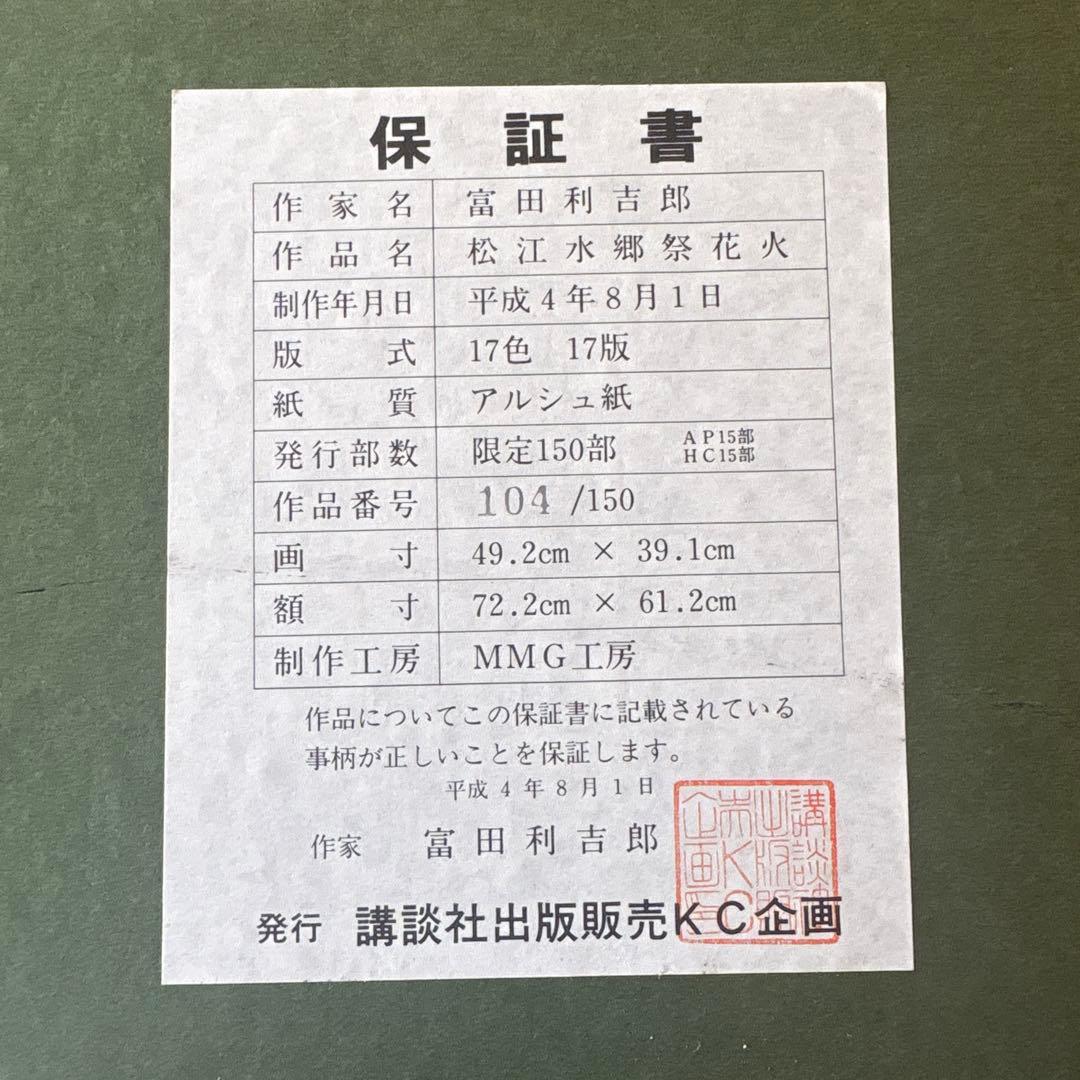 保証書
作家名 富田利吉郎
作品名 松江水郷祭花火
制作年月日 平成4年8月1日
版式 17色 17版
紙質 アルシュ紙
発行部数 限定150部 AP15部
HC15部
作品番号 104 /150
画寸 49.2cm × 39.1cm
額寸 72.2cm × 61.2cm
制作工房 MMG工房
作品についてこの保証書に記載されている
事柄が正しいことを保証します。
平成4年8月1日
作家 富田利吉郎
発行 講談社出版販売KC企画